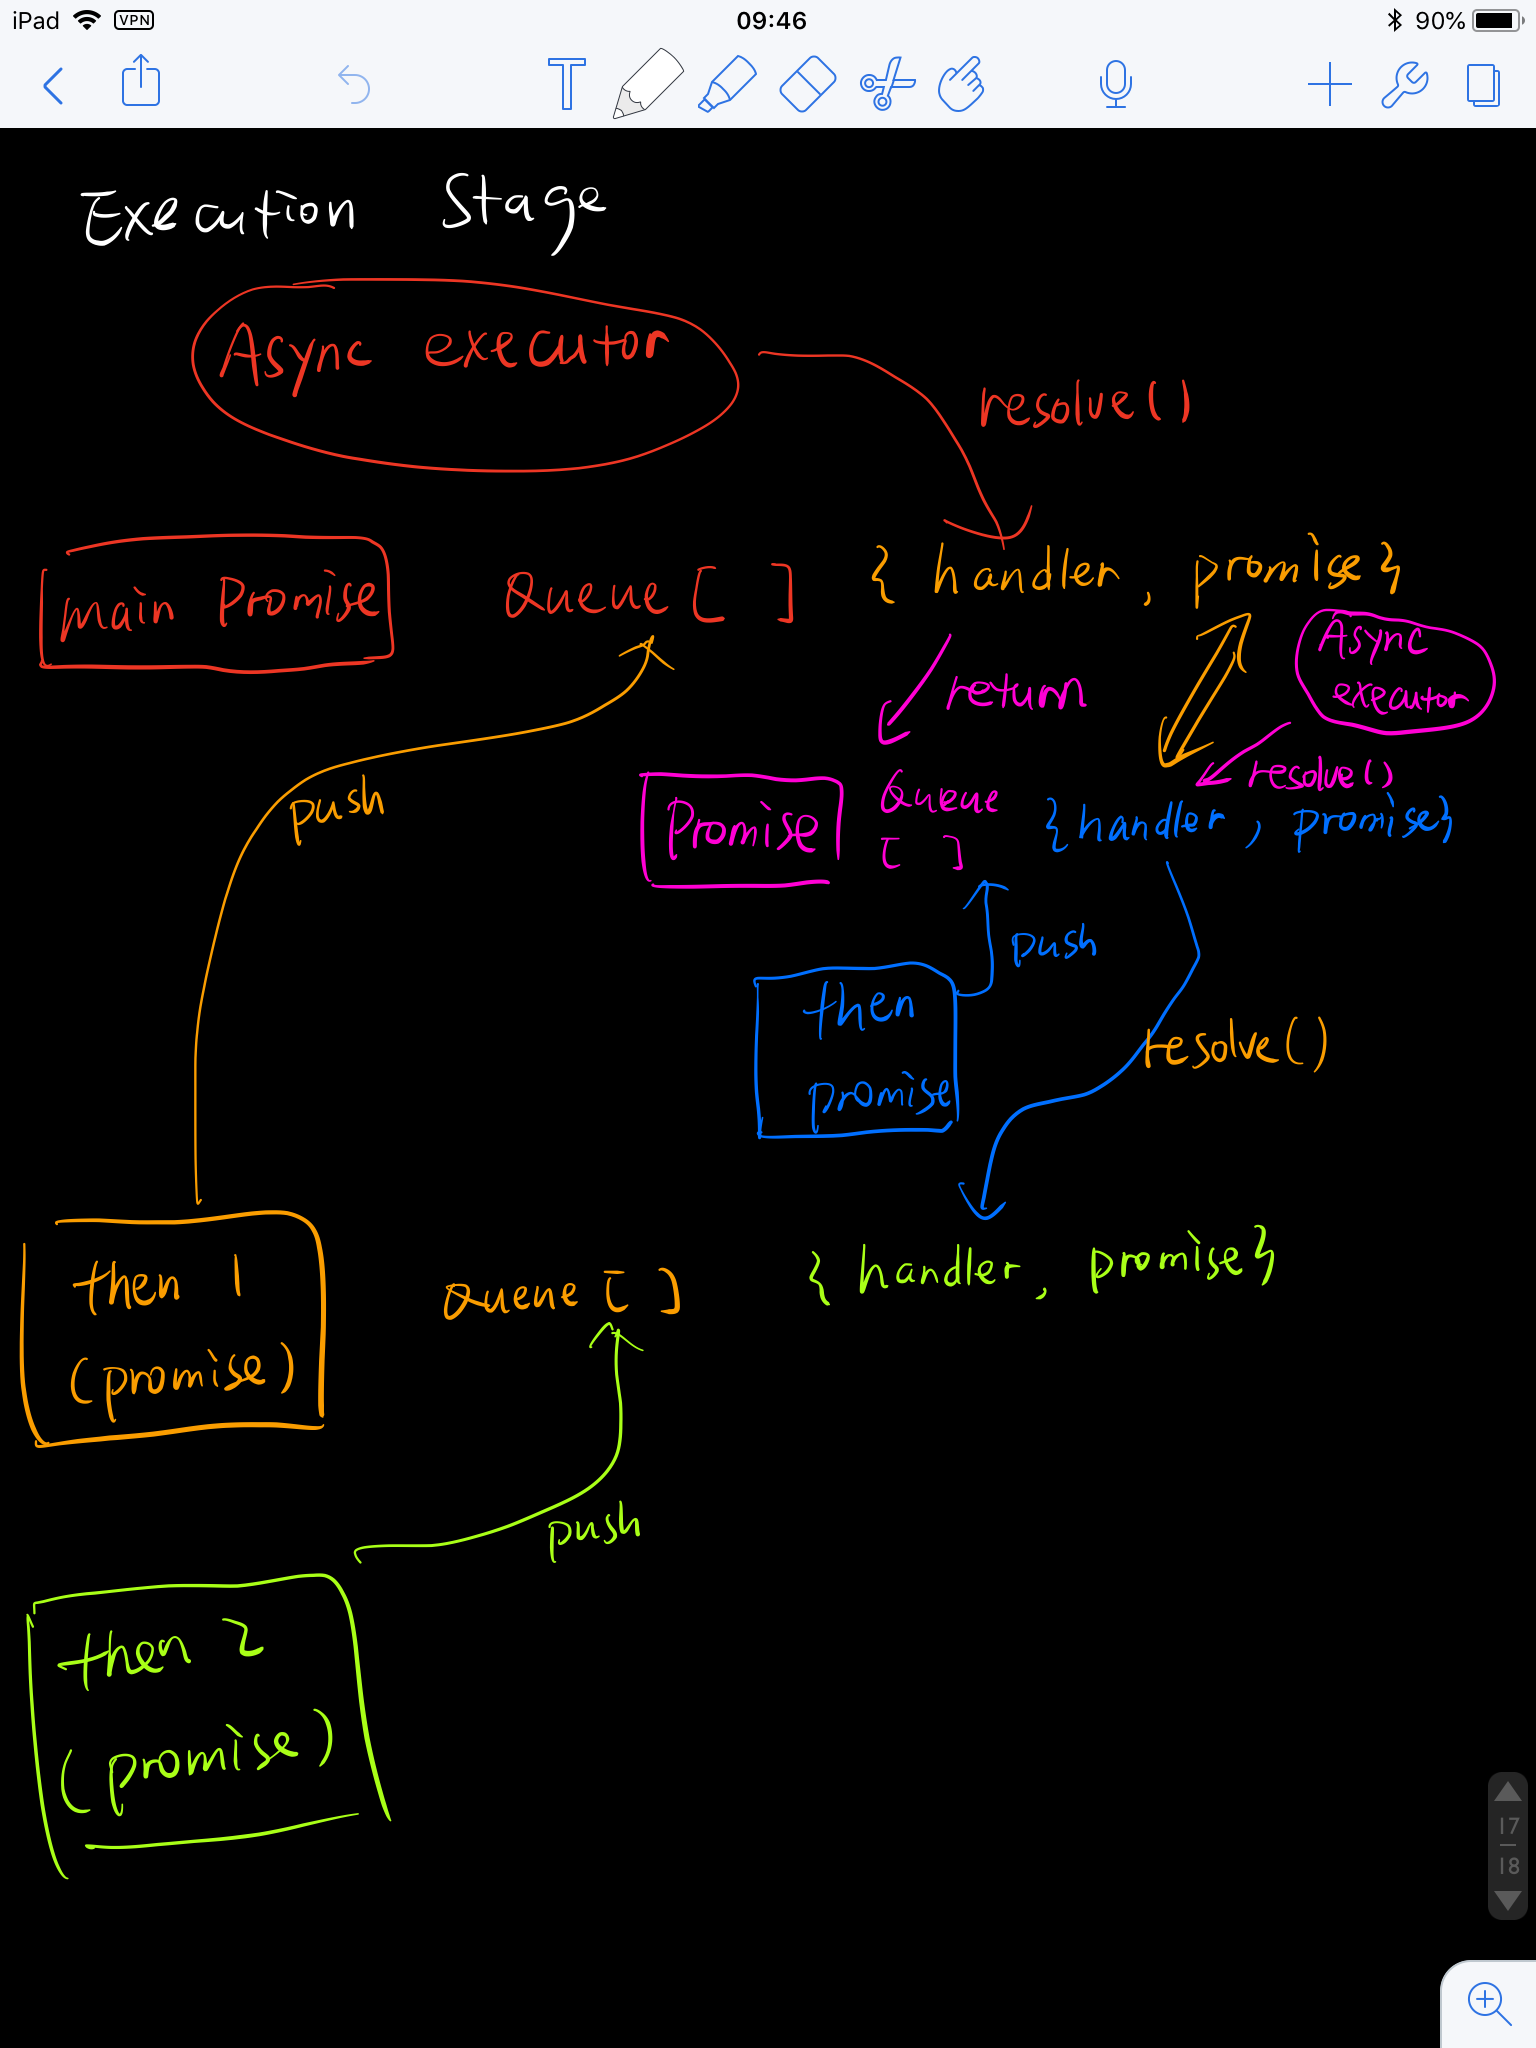 iPad VPN 09:46 90%
T
Execution Stage
Async executor
resolve()
main Promise Queue [ ] { handler, promise }
Async
executor
return
resolve()
push
Promise Queue
[ ]
{handler, promise}
push
then
promise
resolve()
then 1
(promise)
Queue [ ]
{ handler, promise}
push
then 2
(promise)
17
18